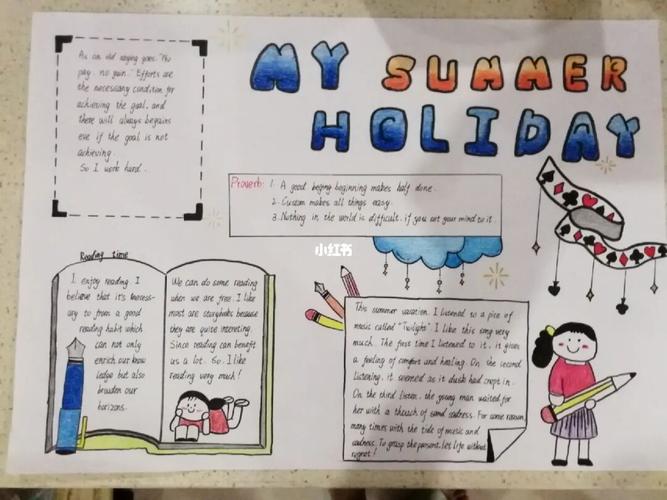 MY SUMMER
HOLIDAY
As an old saying goes. "No
pay, no gain." Efforts are
the necessary condition for
achieving the goal, and
there will always begains
eve if the goal is not
achieving.
So I work hard.
Proverb: 1. A good beging beginning makes half done.
2. Custom makes all things easy.
3. Nothing in the world is difficult, if you set your mind to it.
小红书
Reading time
I enjoy reading. I
believe that it's necess-
ary to from a good
reading habit which
can not only
enrich our know
ledge but also
broaden our
horizons.
We can do some reading
when we are free. I like
most are storybooks because
they are quite interesting.
Since reading can benefit
us a lot. So, I like
reading very much!
This summer vacation, I listened to a pice of
music called "Twilight". I like this song very
much. The first time I listened to it, it gives
a feeling of comfort and healing. On the second
listening, it seemed as it dusk had crept in.
On the third listen, the young man waited for
her with a touch of sadness. For some reason,
many times with the tide of music and
sadness. To grasp the persont, let life without
regret!